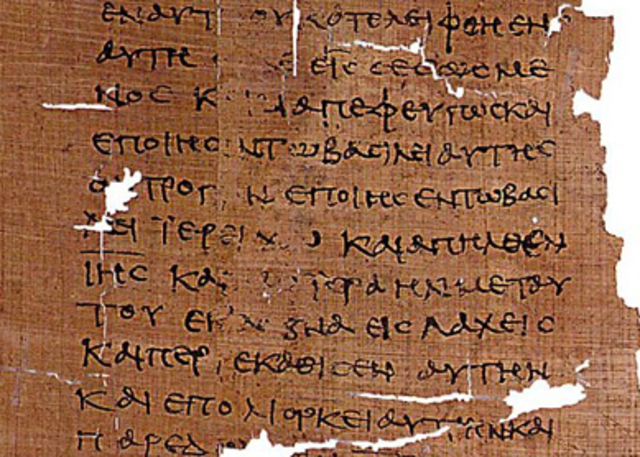 ΕΝ ΑΥΤ ΟΥ ΚΑΤΕΛΕΙΦΘΗ ΕΝ
ΑΥΤΗ ΕΙϹ ϹΕϹΩϹΜΕ
ΝΟϹ Κ ΙΑΠΕΦΕΥΓΩϹ ΚΑΙ
ΕΠΟΙΗϹ ΝΤΩ ΒΑϹΙΛΕΙ ΑΥΤΗϹ
Ο ΤΡΟΠ Ν ΕΠΟΙΗϹΕΝ ΤΩ ΒΑϹΙ
ΛΕΙ ΪΕΡΕΙΧ ΚΑΙ ΑΠΗΛΘΕΝ
ΙΗϹ ΚΑ ϹΡΑΗΛ ΜΕΤ ΑΥ
ΤΟΥ ΕΚ ΝΑ ΕΙϹ ΛΑΧΕΙϹ
ΚΑΙ ΠΕΡΙΕΚΑΘΙϹΕΝ ΑΥΤΗΝ
ΚΑΙ ΕΠΟΛΙΟΡΚΕΙ ΑΥΤΗΝ ΚΑΙ
ΠΑΡΕΔ